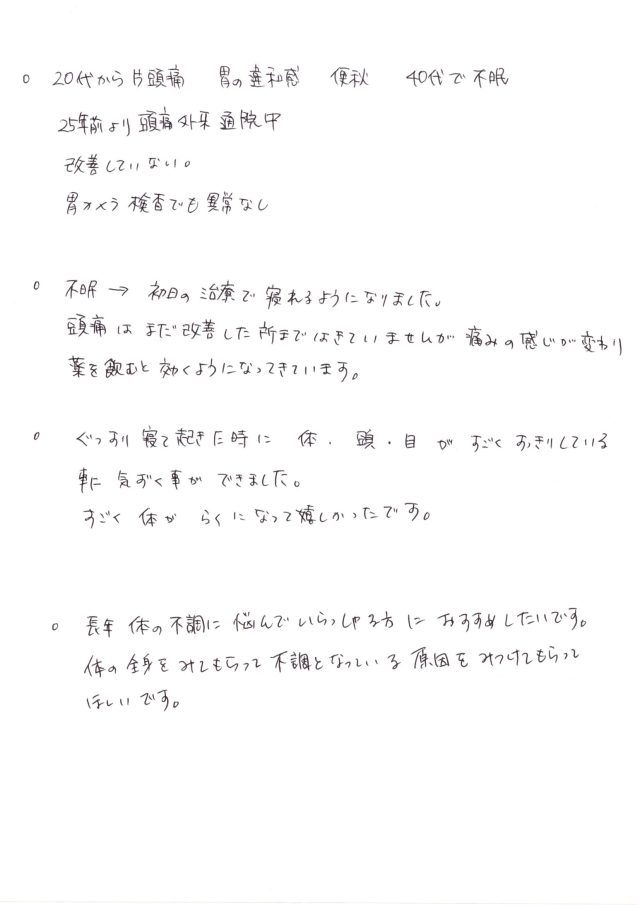 ○ 20代から片頭痛 胃の違和感 便秘 40代で不眠
25年前より頭痛外来通院中
改善していない。
胃カメラ検査でも異常なし
○ 不眠→ 初日の治療で寝れるようになりました。
頭痛はまだ改善した所まではきていませんが痛みの感じが変わり
薬を飲むと効くようになってきています。
○ ぐっすり寝て起きた時に 体・頭・目がすごくすっきりしている
事に気ずく事ができました。
すごく体がらくになって嬉しかったです。
○ 長年体の不調に悩んでいらっしゃる方におすすめしたいです。
体の全身をみてもらって不調となっている原因をみつけてもらって
ほしいです。